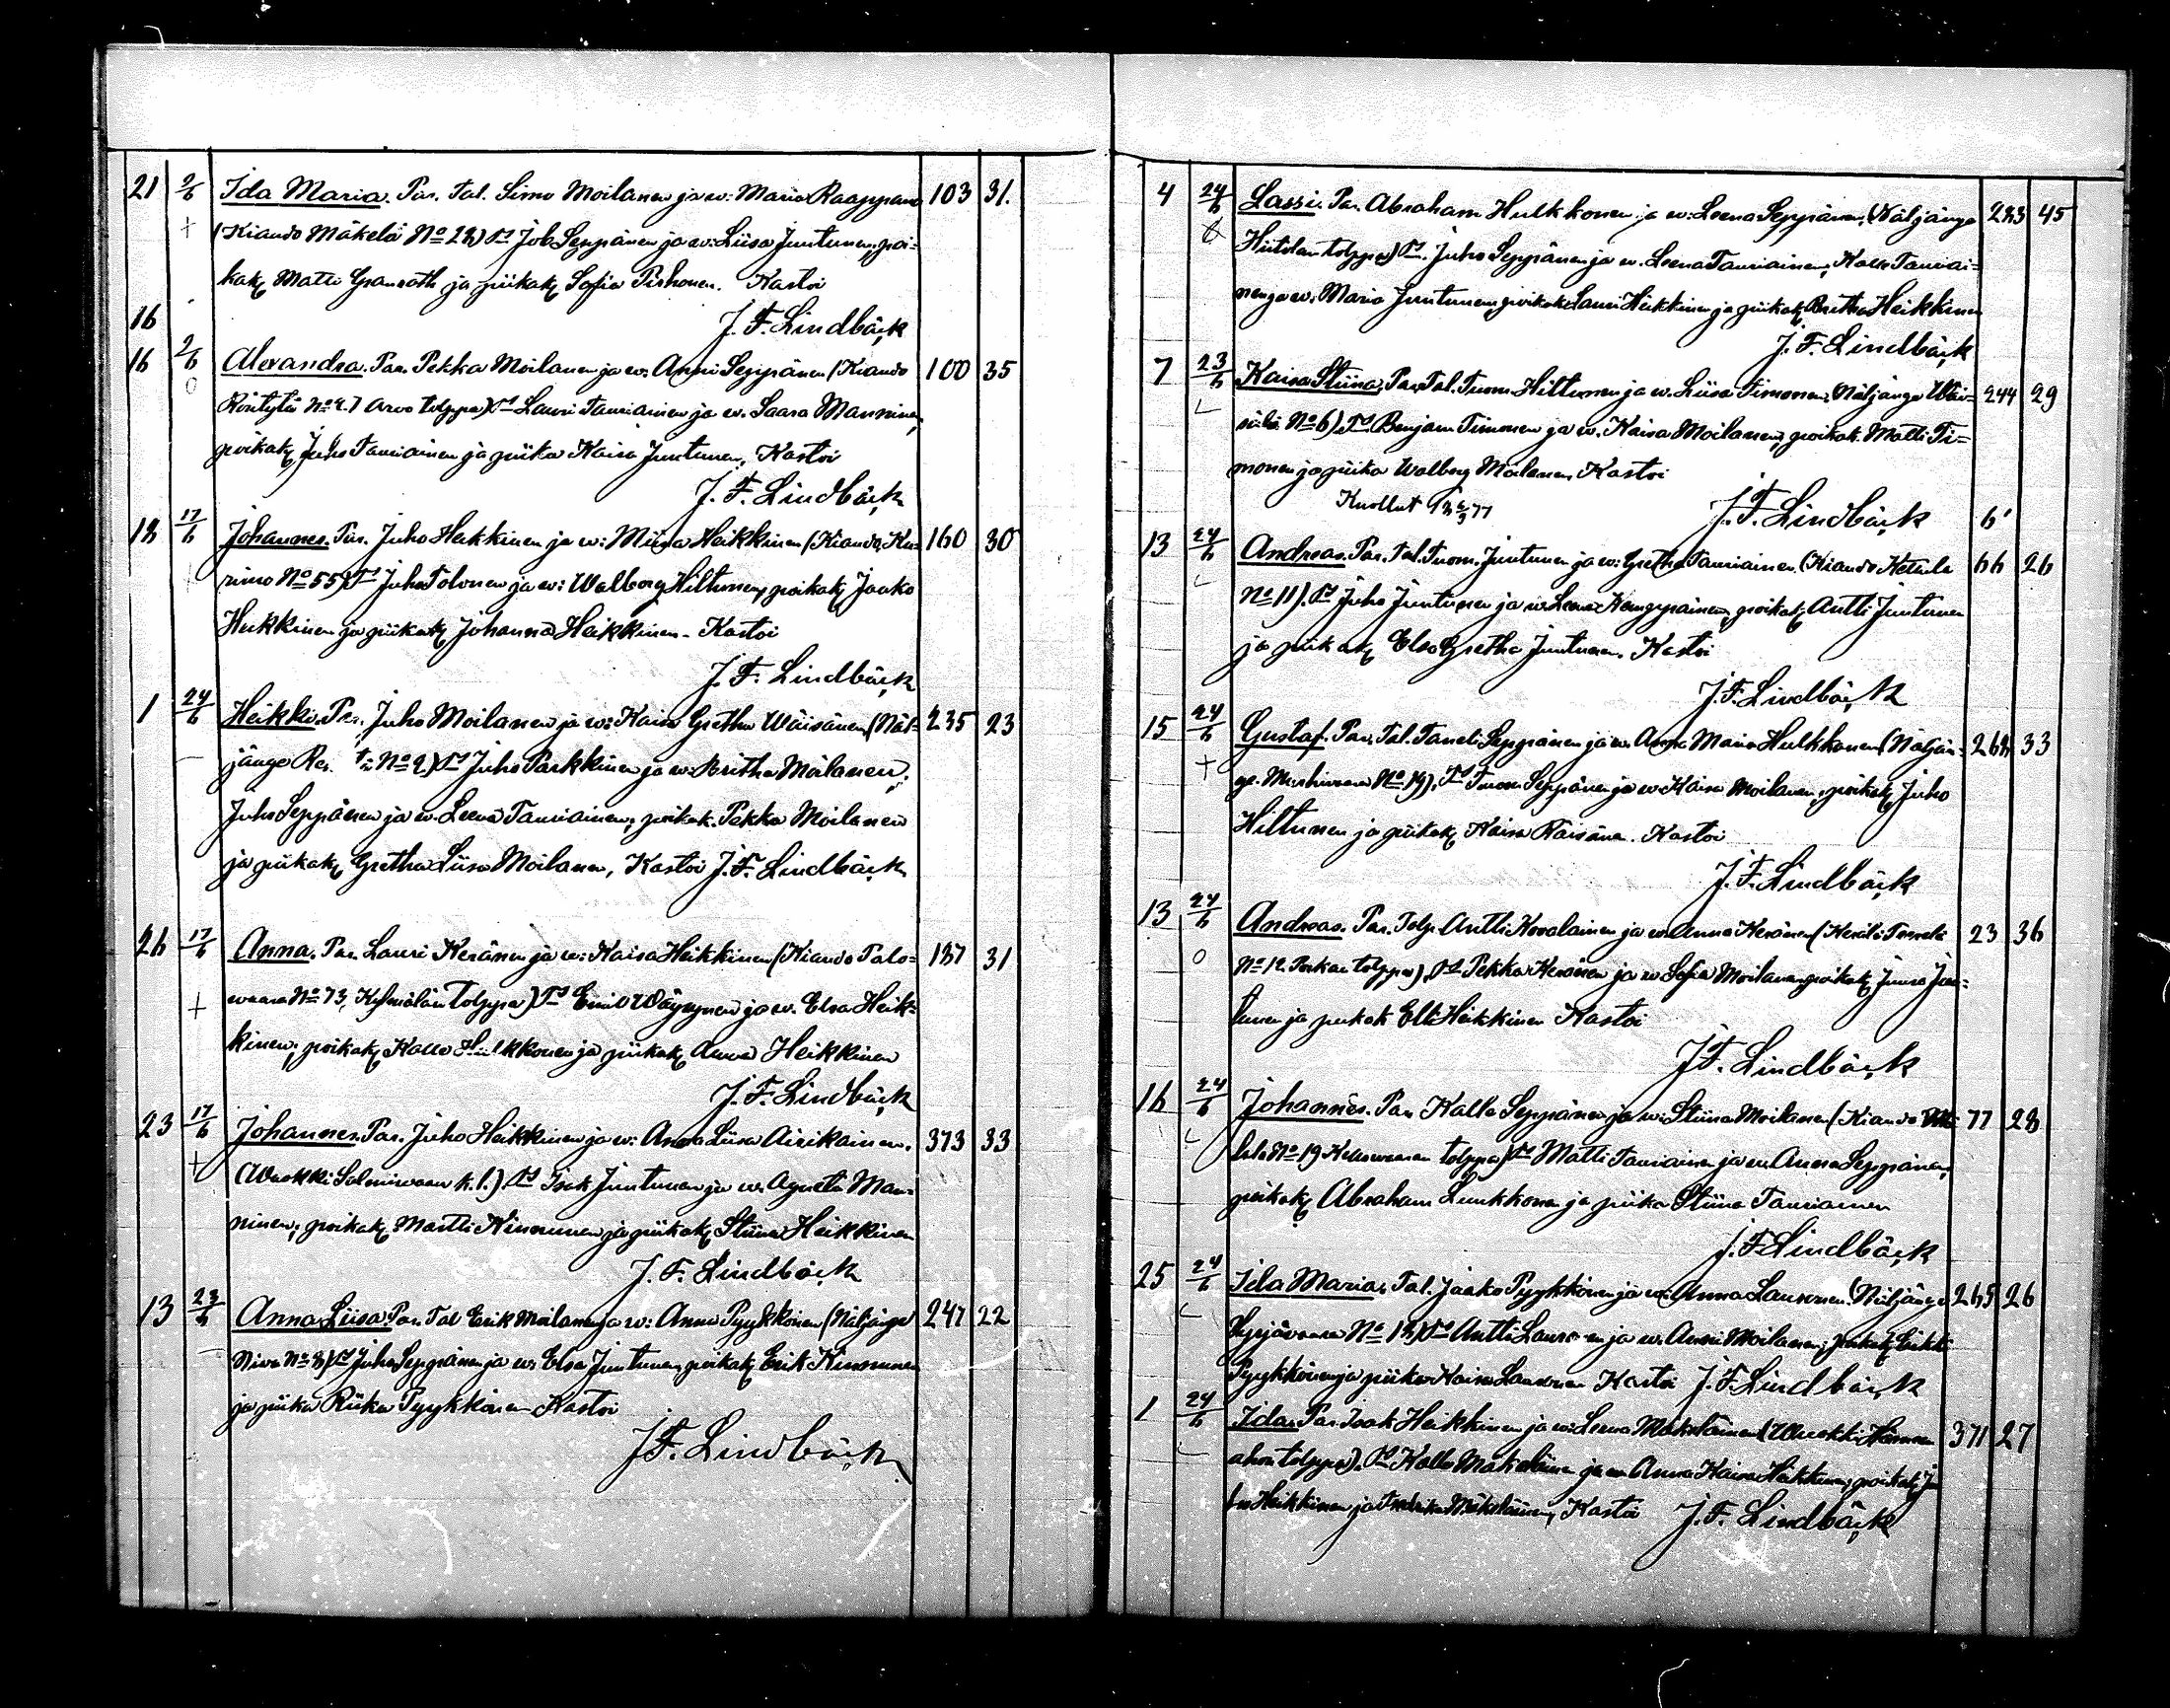 21 2/6 Ida Maria. Par. Tal. Simo Moilanen ja w: Maria Raappana 103 31.
+ (Kiando Mäkelä No 28) Tt Job Seppänen ja w: Liisa Juntunen, poi-
kak Matti Granroth ja piikak Sofia Pirhonen. Kastoi
16 J. F. Lindbäck
16 2/6 Alexandra. Par. Pekka Moilanen ja w. Anni Seppänen (Kiando 100 35
0 No 27 Arvo tolppa) Tt Lauri Tauriainen ja w. Saara Manninen,
poikak Juho Tauriainen ja piika Kaisa Juntunen, Kastoi
J. F. Lindbäck
18 17/6 Johannes. Par. Juho Heikkinen ja w: Miina Heikkinen (Kiando, Ku- 160 30
rimo No 55) Tt Juho Tolonen ja w: Walborg Hiltunen, poikak Jaako
Heikkinen ja piikak Johanna Heikkinen - Kastoi
J. F. Lindbäck
1 24/6 Heikki. Par. Juho Moilanen ja w: Kaisa Gretha Wäisänen (Näl- 235 23
– jänge No 2) Tt Juho Parkkinen ja w: Britha Moilanen,
Juho Seppänen ja w. Leena Tauriainen, poikak. Pekka Moilanen
ja piikak Gretha Liisa Moilanen, Kastoi J. F. Lindbäck
26 17/6 Anna. Par. Lauri Keränen ja w: Kaisa Heikkinen (Kiando Palo- 137 31
+ waara No 73, Kylmälän Tolppa) Tt Emil Väyrynen ja w. Elsa Heik-
kinen, poikak Kalle Hulkkonen ja piikak Anna Heikkinen
J. F. Lindbäck
23 17/6 Johannes. Par. Juho Heikkinen ja w: Anna Liisa Airikainen. 373 33
+ (Wuokki Salmiwaara k. l.) Tt Isak Juntunen ja w. Agneta Man-
ninen, poikak Martti Kinnunen ja piikak Stiina Heikkinen
J. F. Lindbäck
13 23/6 Anna Liisa. Par. Tal Erik Moilanen ja w: Anna Pyykkönen (Näljänge 247 22
– Niva No 8) Tt Juho Seppänen ja w. Elsa Juntunen, poikak Erik Kinnunen
ja piika Riika Pyykkönen Kastoi
J. F. Lindbäck
4 24/6 Lassi. Par. Abraham Hulkkonen ja w: Leena Seppänen, (Näljänge 283 45
Hiitolan tolppa) Tt. Juho Seppänen ja w. Leena Tauriainen, Kalle Tauriai-
nen ja w. Maria Juntunen, poikak Lauri Heikkinen ja piikak Britha Heikkinen
J. F. Lindbäck
7 23/6 Kaisa Stiina, Par. Tal. Tuom. Hiltunen ja w. Liisa Timonen, Näljänge 244 29
No 6) Tt Benjam Timonen ja w. Kaisa Moilanen, poikak. Matti Ti-
monen ja piika Walborg Moilanen, Kastoi
Kuollut
J. F. Lindbäck 6'
13 24/6 Andreas. Par. Tal. Tuom. Juntunen ja w: Gretha Tauriainen. (Kiando Ketula 66 26
No 11). Tt Juho Juntunen ja w. Leena Kemppainen, poikak Antti Juntunen
ja piikak Elsa Gretha Juntunen. Kastoi
J. F. Lindbäck
15 24/6 Gustaf. Par. Tal. Taneli Seppänen ja w. Anna Maria Hulkkonen (Näljän- 268 33
+ ge No 19). Tt Tuom. Seppänen ja w Kaisa Moilanen, poikak Juho
Hiltunen ja piikak Kaisa Räisänen. Kastoi
J. F. Lindbäck
13 24/6 Andreas. Par. Tolp. Antti Kovalainen ja w. Anna Keränen 23 36
0 No 12. tolppa), Tt Pekka Keränen ja w Sofia Moilanen, poikak Jun-
tunen ja piikak Heikkinen Kastoi
J. F. Lindbäck
16 24/6 Johannes. Par. Kalle Seppänen ja w: Stiina Moilanen (Kiando 77 28
No 19 tolppa) Tt Matti Tauriainen ja w. Anna Seppänen,
poikak Abraham Lunkkonen ja piika Stiina Tauriainen
J. F. Lindbäck
25 24/6 Ida Maria, Tal. Jaako Pyykkönen ja w: Anna Lauronen. (Näljänge 265 26
Syrjävaara No 18) Tt Antti Lauronen ja w. Anni Moilanen, poikak
Pyykkönen ja piika Kaisa Lauronen Kastoi J. F. Lindbäck
1 24/6 Ida. Par. Isak Heikkinen ja w: Leena Mäkeläinen (Wuokki 371 27
ahon tolppa). Tt Kalle Mäkeläinen ja w Anna Kaisa Heikkinen, poikak Ju-
ho Heikkinen ja Mäkeläinen, Kastoi J. F. Lindbäck